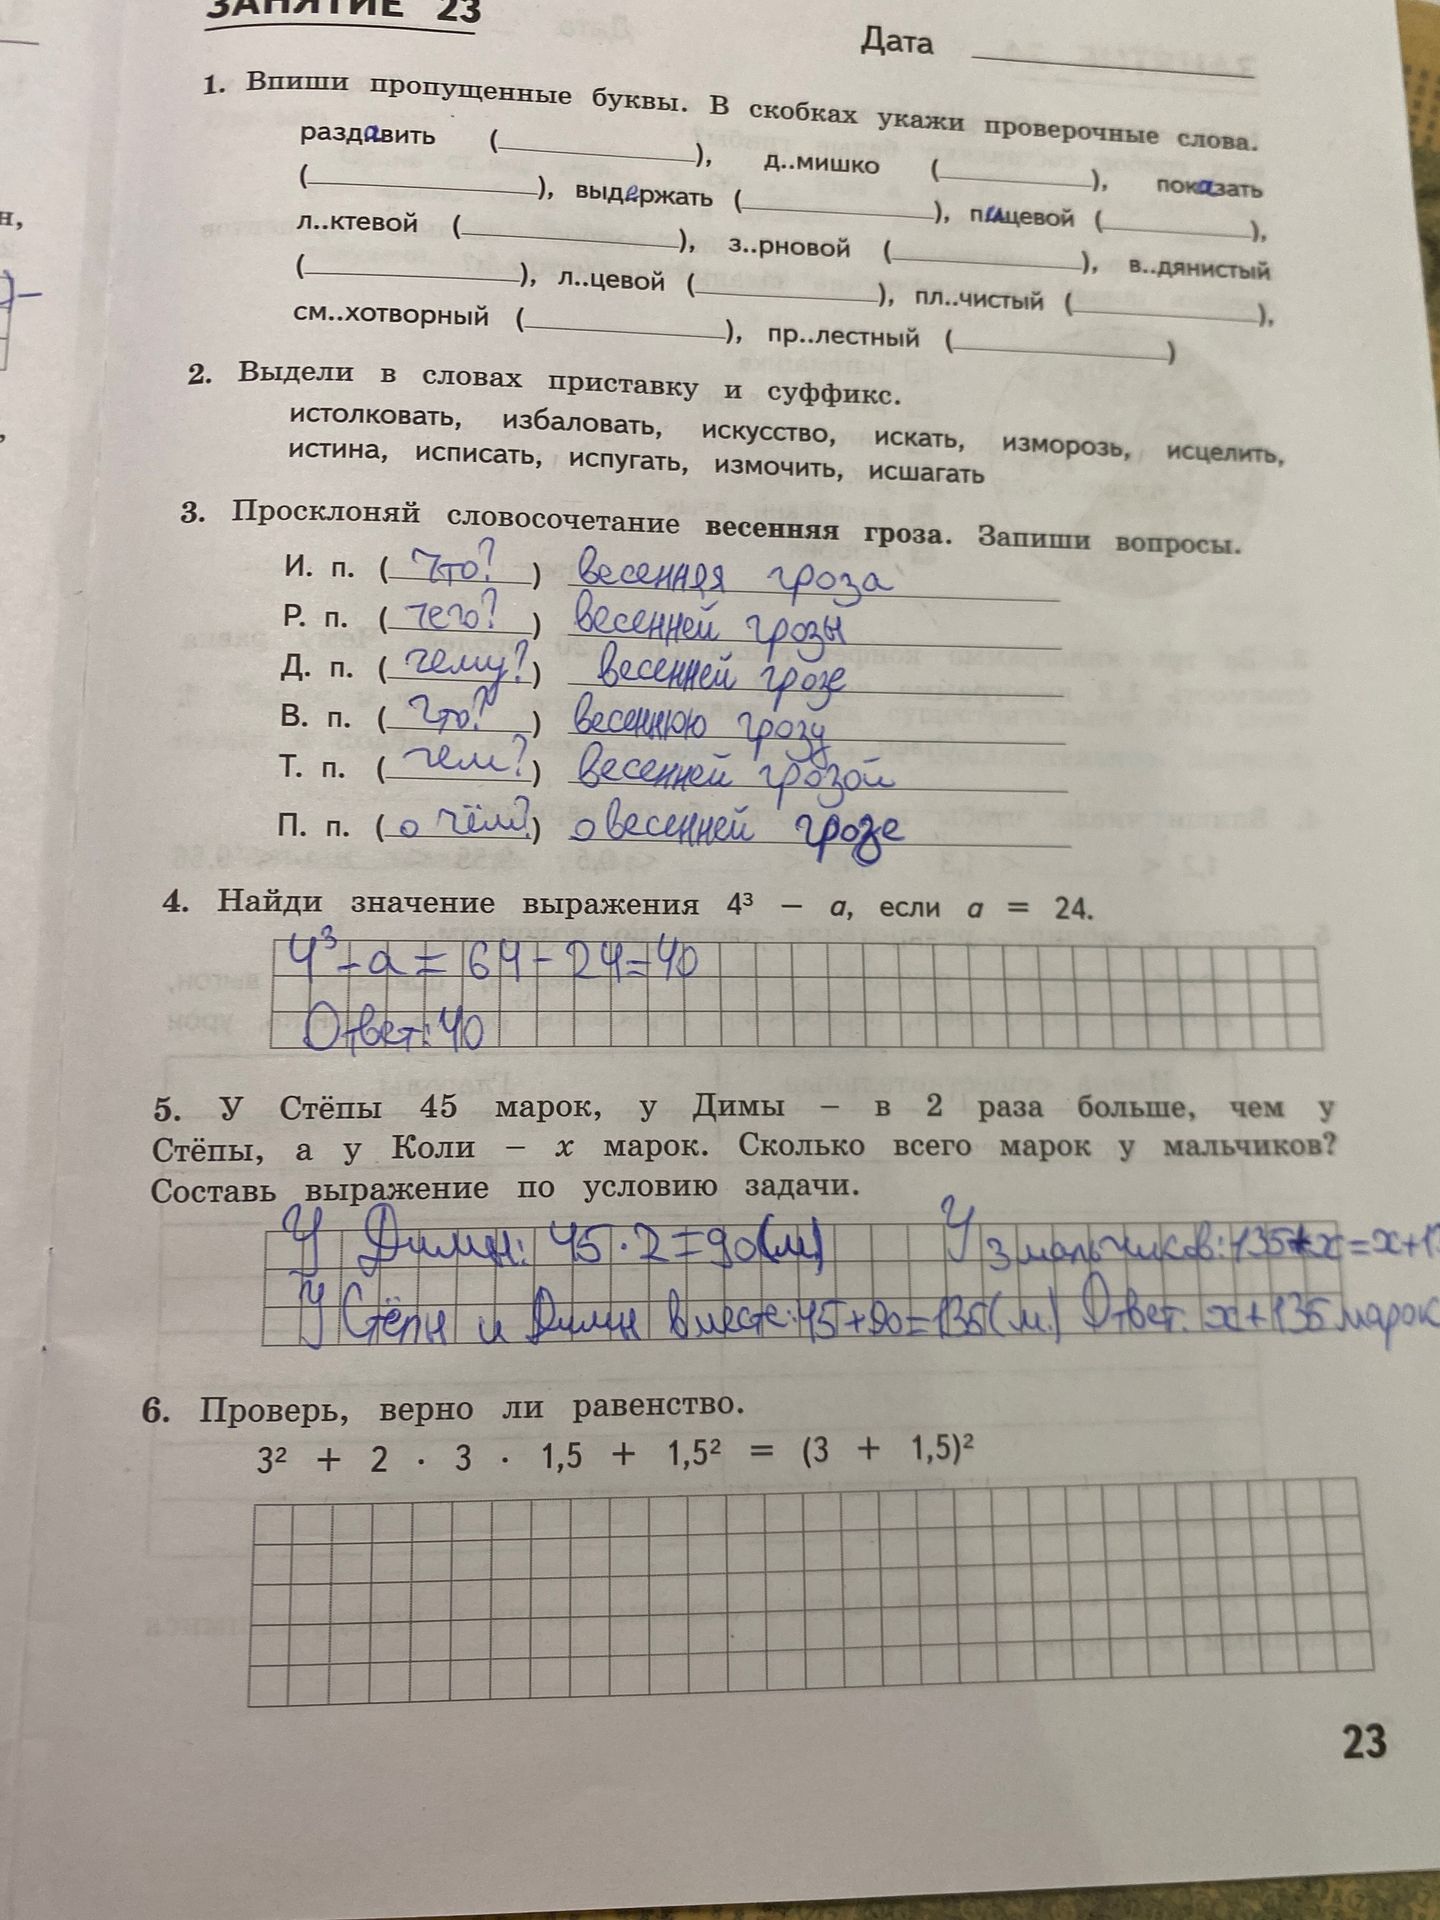 ЗАНЯТИЕ 23
Дата
1. Впиши пропущенные буквы. В скобках укажи проверочные слова.
раздавить (), д..мишко (), показать
(), выдержать (), пищевой (),
л..ктевой (), з..рновой (), в..дянистый
(), л..цевой (), пл..чистый (),
см..хотворный (), пр..лестный ()
2. Выдели в словах приставку и суффикс.
истолковать, избаловать, искусство, искать, изморозь, исцелить,
истина, исписать, испугать, измочить, исшагать
3. Просклоняй словосочетание весенняя гроза. Запиши вопросы.
И. п. (что?) весенняя гроза
Р. п. (чего?) весенней грозы
Д. п. (чему?) весенней грозе
В. п. (что?) весеннюю грозу
Т. п. (чем?) весенней грозой
П. п. (о чём?) о весенней грозе
4. Найди значение выражения 4³ – a, если a = 24.
4³ - a = 64 - 24 = 40
Ответ: 40
5. У Стёпы 45 марок, у Димы – в 2 раза больше, чем у
Стёпы, а у Коли – x марок. Сколько всего марок у мальчиков?
Составь выражение по условию задачи.
У Димы: 45 · 2 = 90 (м) У 3 мальчиков: 135 + x = x + 13
У Стёпы и Димы вместе: 45 + 90 = 135 (м.) Ответ: x + 135 марок
6. Проверь, верно ли равенство.
3² + 2 · 3 · 1,5 + 1,5² = (3 + 1,5)²
23